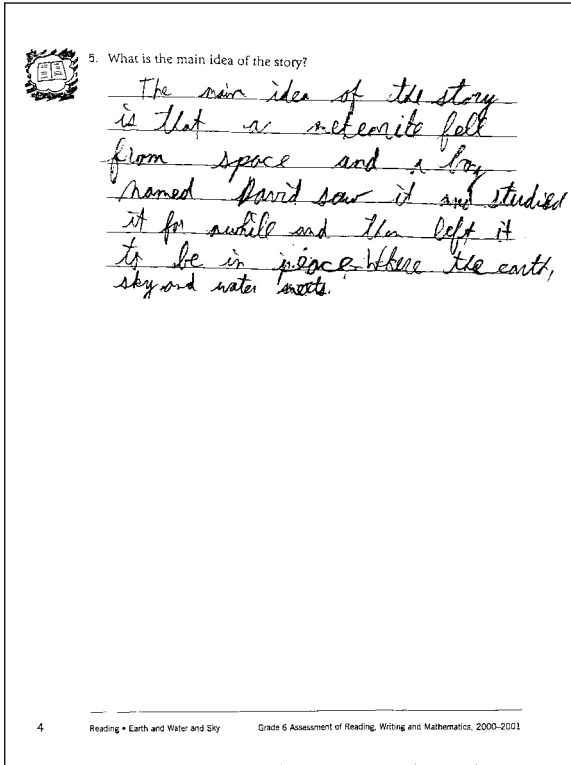 5. What is the main idea of the story?
The main idea of the story
is that a meteorite fell
from space and a boy
named David saw it and studied
it for awhile and then left it
to be in peace Where the earth,
sky and water meets.
4 Reading • Earth and Water and Sky Grade 6 Assessment of Reading, Writing and Mathematics, 2000–2001